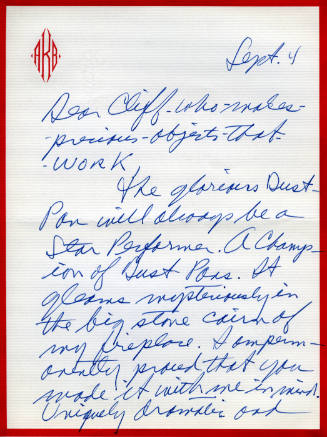 AKB
Sept. 4
Dear Cliff-who-makes-
-precious-objects-that-
-WORK
The glorious Dust-
Pan will always be a
Star Performer. A Champ-
ion of Dust Pans. It
gleams mysteriously in
the big stone cairn of
my fireplace. I am perm-
anently proud that you
made it with me in mind.
Uniquely dramatic and